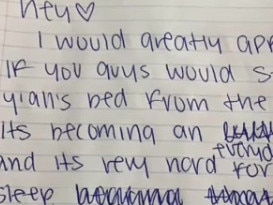 hey♡
I would greatly app
if you guys would s
yian's bed from the
its becoming an
everyd
and its very hard for
sleep